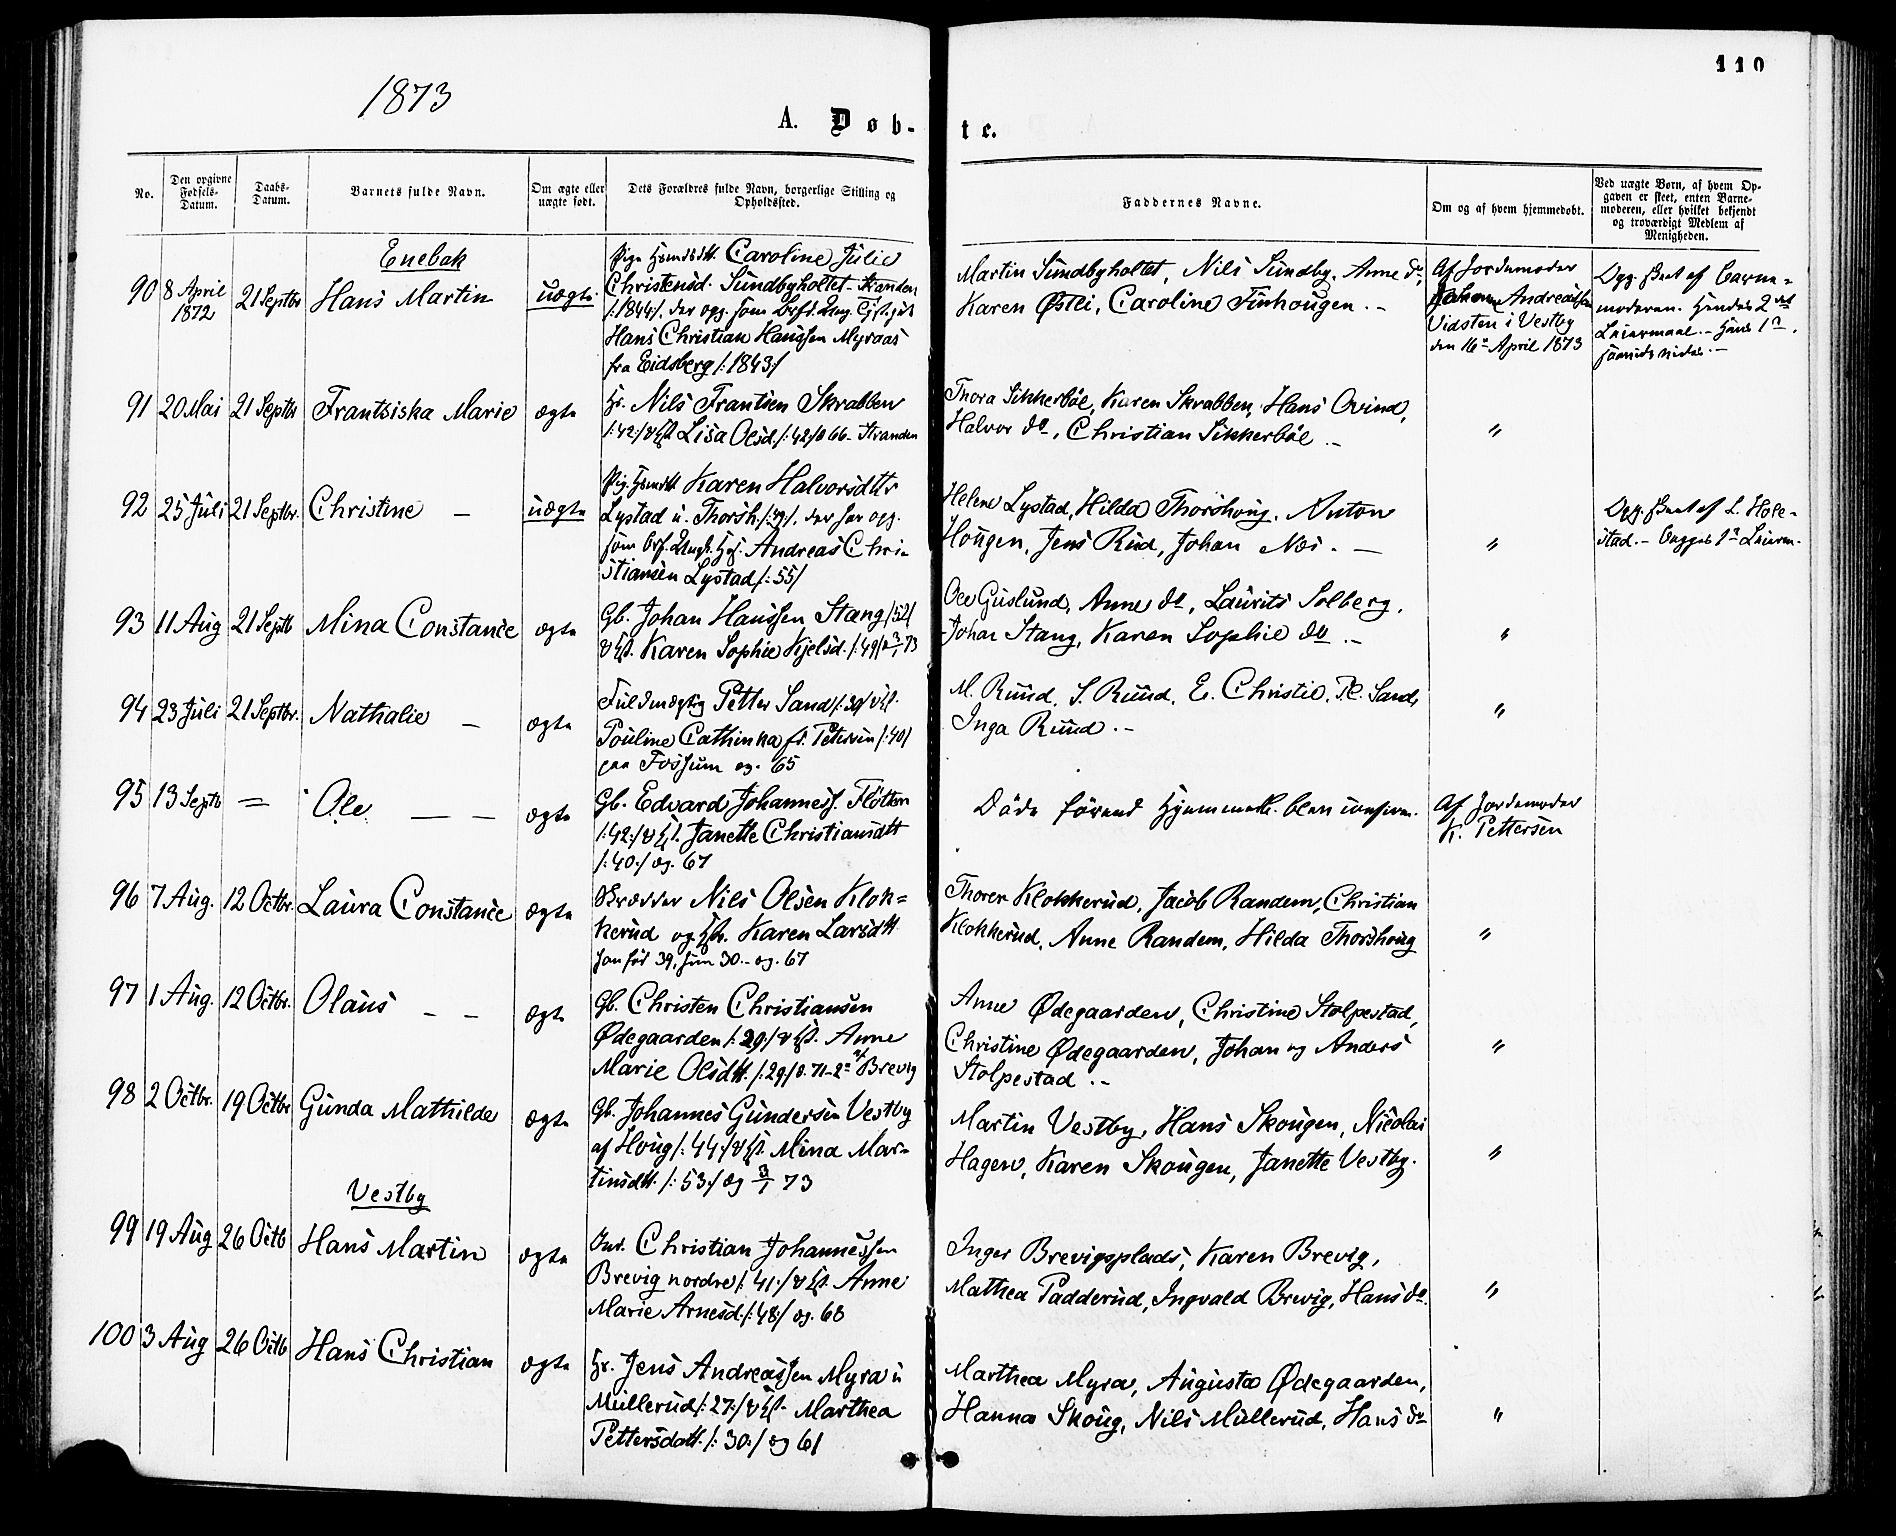 110
1873
A. Døb-
te.
No.
Den opgivne Fødsels-Datum.
Daabs-Datum.
Barnets fulde Navn.
Om ægte eller uægte født.
Dets Forældres fulde Navn, borgerlige Stilling og Opholdssted.
Faddernes Navne.
Om og af hvem hjemmedøbt.
Ved uægte Børn, af hvem Opgaven er skeet, enten Barnemoderen, eller hvilket bekjendt og troværdigt Medlem af Menigheden.
Enebak
90 8 April 1872 21 Septbr Hans Martin uægte
Caroline Julie
Christensd. Sundbyholtet - Stranden
/:1844/. der opg. som
Hans Christian Hanssen Myraas
fra Eidsberg /:1843/
Martin Sundbyholtet, Nils Sundby, Anne do,
Karen Østli, Caroline Finhougen. -
Af Jordemoder
Andreassen
Vidsten i Vestby
den 16 April 1873
Opg. skeet af Barne-
moderen. Hendes 2det
Leiermaal. - Hans 1
91 20 Mai 21 Septbr Frantsiska Marie ægte
Nils Frantsen Skrabben
/:42:/ & Lisa Olsd. /:42/ 66 - Stranden
Thora Sikkerböl, Karen Skrabben, Hans Ovind,
Halvor do, Christian Sikkerböl -
"
92 25 Juli 21 Septbr. Christine - uægte
Karen Halvorsdttr
Lystad u. Thorsh. der har opg.
som Andreas Chri-
stiansen Lystad /:55/
Helene Lystad, Hilda Thorshoug, Anton
Hougen, Jens Rud, Johan Næs. -
"
Opg. skeet af L. Hole-
stad. - Begges 1 Leierm.
93 11 Aug 21 Septb Mina Constance ægte
Gb. Johan Hanssen Stang /52/
& Karen Sophie Kjelsd. /:49/ 3/1 73
Ole Guslund, Anne do, Laurits Solberg,
Johan Stang, Karen Sophie do -
"
94 23 Juli 21 Septbr. Nathalie - ægte
Fuldmægtig Petter Sand /:39/
Pouline Cathinka f. Petersen /:40/
paa Fossum eg. 65
M. Ruud, S. Ruud, E. Christie, Sand,
Inga Ruud. -
"
95 13 Septb = Ole - - ægte
Gb. Edvard Johanness. Fløtten
/:42:/ & Janette Christiansdtt
/:40:/ eg. 67
Döde förend Hjemmed. blev
Af Jordemoder
K. Pettersen
96 7 Aug. 12 Octbr. Laura Constance ægte
Nils Olsen Klok=
kerud og Karen Larsdtt
han föd 39, hun 30 - eg. 67
Thorer Klokkerud, Jacob Randem, Christian
Klokkerud, Anne Randem, Hilda Thorshoug
"
97 1 Aug. 12 Octbr. Olaus - - ægte
Gb. Christen Christiansen
Ødegaarden /:29:/ & Anne
Marie Olsdtt. /:29/ 71 - Brevig
Anne Ødegaarden, Christine Stolpestad,
Christine Ødegaarden, Johan og Anders
Stolpestad. -
"
98 2 Octbr. 19 Octbr Gunda Mathilde ægte
Gb. Johannes Gundersen Vestby
af Houg /:44:/ & Mina Mar-
tinsdtt. /:53:/ eg 3/1 73
Martin Vestby, Hans Skougen, Nicolai
Hagen, Karen Skougen, Janette Vestby.
"
Vestby
99 19 Aug 26 Octb Hans Martin ægte
Christian Johannessen
Brevig nordre /:41:/ & Anne
Marie Arnesd. /:48/ eg. 68
Inger Brevigsplads, Karen Brevig,
Mathea Padderud, Ingvald Brevig, Hans do.
"
100 3 Aug 26 Octb Hans Christian ægte
Jens Andreassen Myra u
Mullerud /:27:/ & Marthea
Pettersdatt. /:30:/ eg 61
Marthea Myra, Augusta Ødegaarden,
Hanna Skoug, Nils Mullerud, Hans do
"